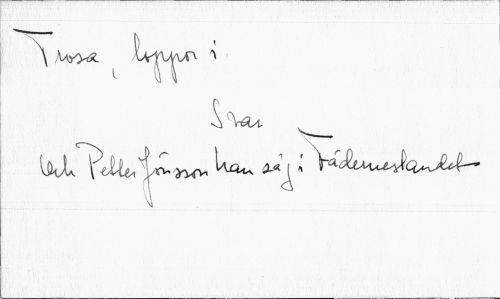 Trosa, loppor i.
Svar
Och Petter Jönsson han såg i Fäderneslandet